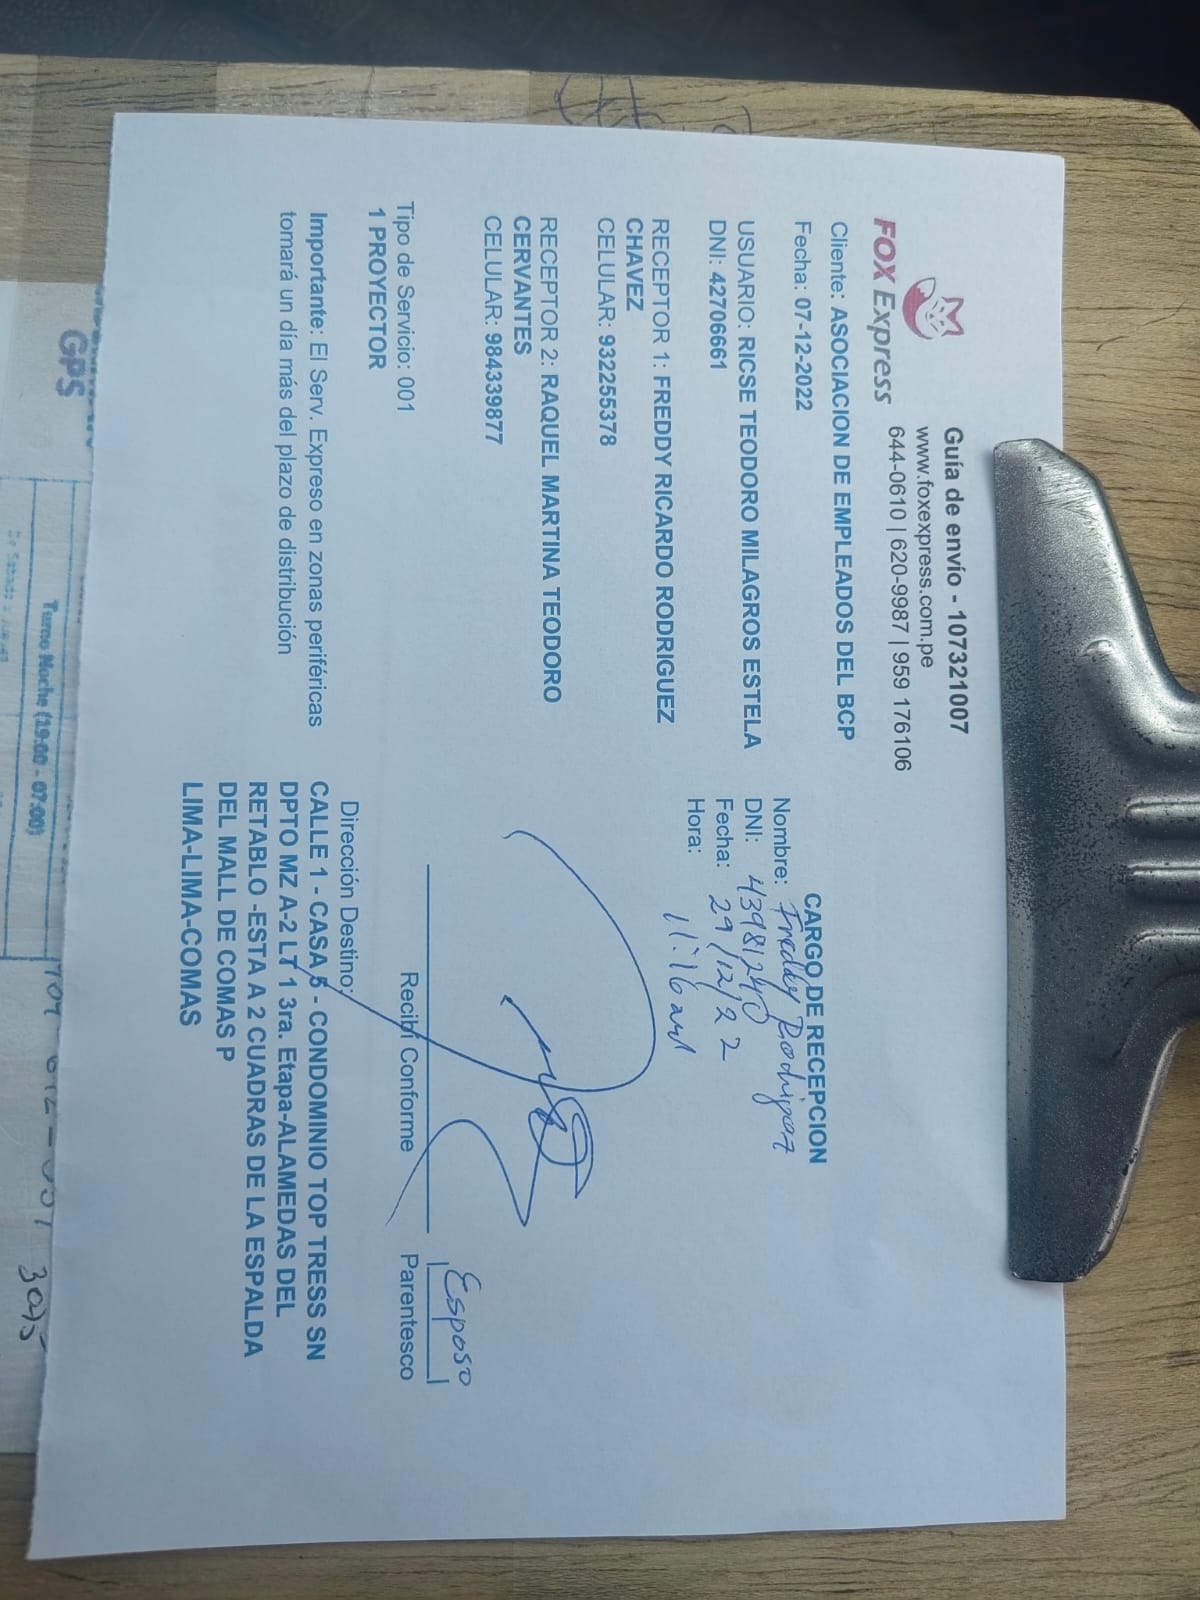 FOX Express
Guía de envío - 107321007
www.foxexpress.com.pe
644-0610 | 620-9987 | 959 176106
Cliente: ASOCIACION DE EMPLEADOS DEL BCP
Fecha: 07-12-2022
USUARIO: RICSE TEODORO MILAGROS ESTELA
DNI: 42706661
RECEPTOR 1: FREDDY RICARDO RODRIGUEZ
CHAVEZ
CELULAR: 932255378
RECEPTOR 2: RAQUEL MARTINA TEODORO
CERVANTES
CELULAR: 984339877
Tipo de Servicio: 001
1 PROYECTOR
Importante: El Serv. Expreso en zonas periféricas
tomará un día más del plazo de distribución
CARGO DE RECEPCION
Nombre: Freddy Rodriguez
DNI: 43981240
Fecha: 29/12/22
Hora: 11:16 am
Esposo
Recibí Conforme
Parentesco
Dirección Destino:
CALLE 1 - CASA 5 - CONDOMINIO TOP TRESS SN
DPTO MZ A-2 LT 1 3ra. Etapa-ALAMEDAS DEL
RETABLO -ESTA A 2 CUADRAS DE LA ESPALDA
DEL MALL DE COMAS P
LIMA-LIMA-COMAS
GPS
Turno Noche (19:00 - 07:00)